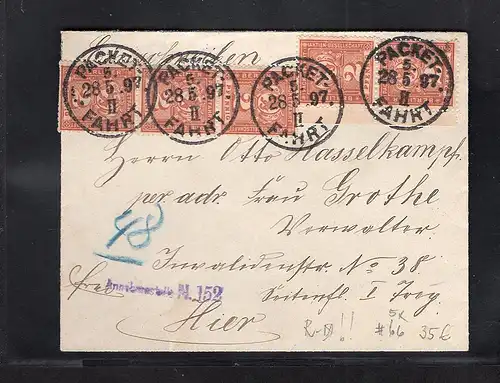 Einschreiben
AKTIEN-GESELLSCHAFT
PACKET-
5.
28 5.97.
II
FAHRT
PACKET-
5.
28 5.97
II
FAHRT
PACKET-
5.
28 5.97.
II
FAHRT
PACKET-
5.
28 5.97
II
FAHRT
Herrn Otto Hasselkampf
per. adr. Frau Grothe
Verwalter
48
Invalidenstr. No 38.
frei Annahmestelle N. 152
Seitenfl. I Trp
Hier
R-B !!
5x
#66
35€